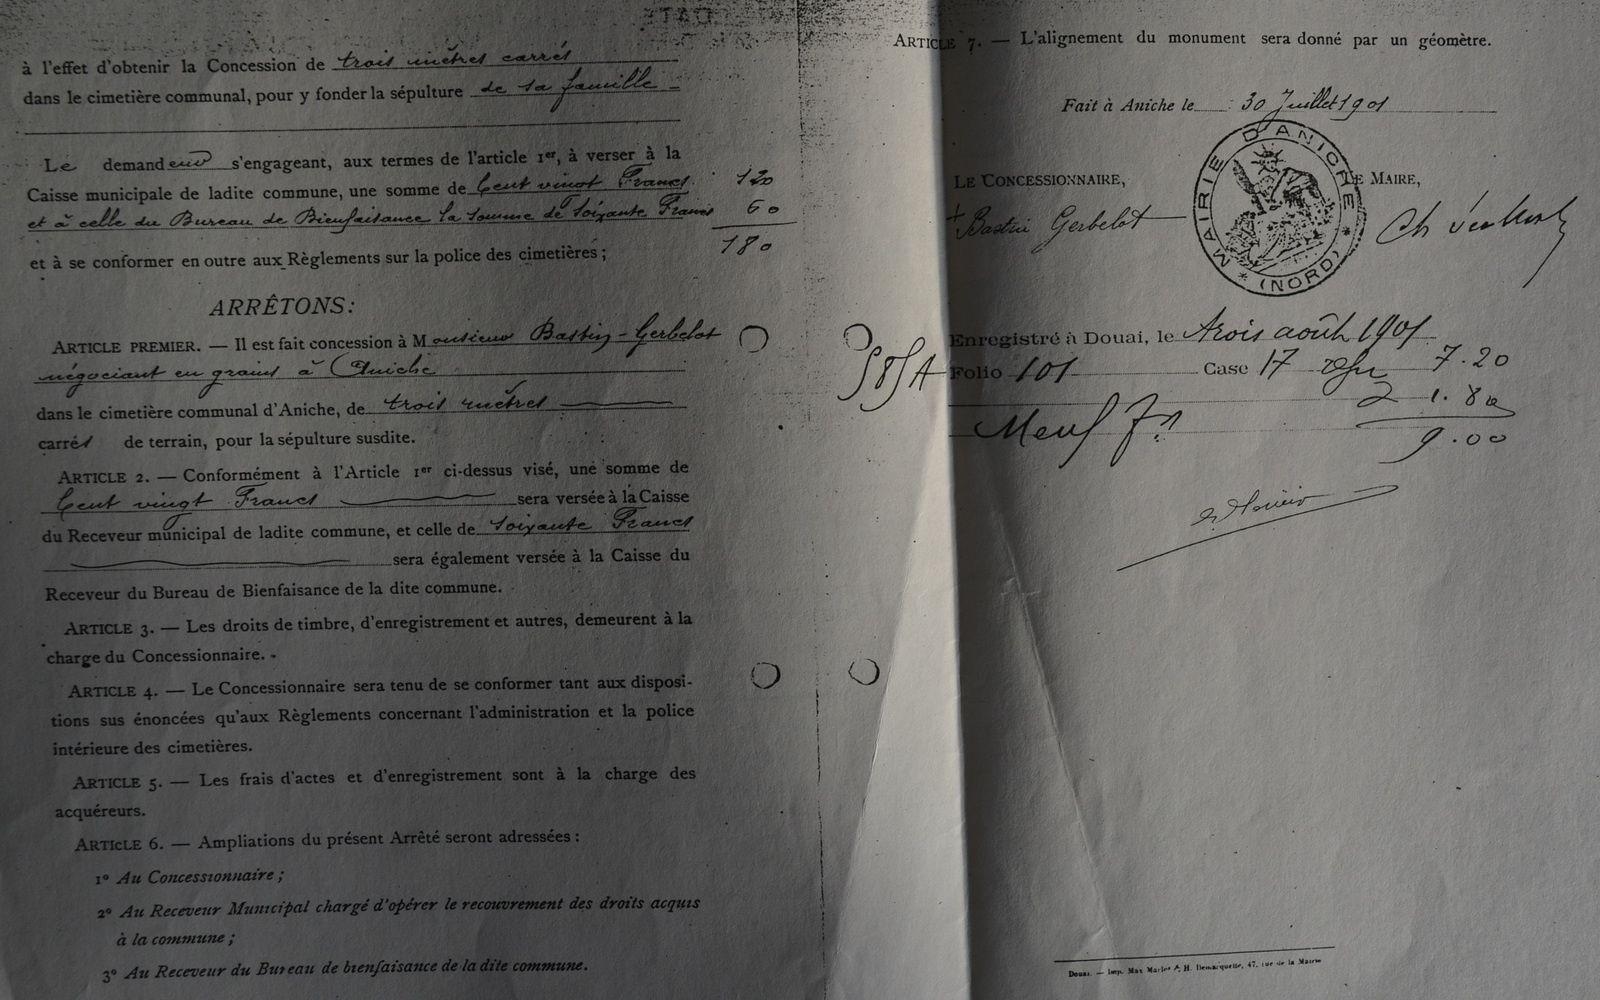 à l'effet d'obtenir la Concession de trois mètres carrés
dans le cimetière communal, pour y fonder la sépulture de sa famille
Le demandeur s'engageant, aux termes de l'article 1er, à verser à la
Caisse municipale de ladite commune, une somme de Cent vingt Francs 120
et à celle du Bureau de Bienfaisance la somme de Soixante Francs 60
180
et à se conformer en outre aux Règlements sur la police des cimetières ;
ARRÊTONS :
ARTICLE PREMIER. — Il est fait concession à Monsieur Bastin-Gerbelot
négociant en grains à Aniche
dans le cimetière communal d'Aniche, de trois mètres
carrés de terrain, pour la sépulture susdite.
ARTICLE 2. — Conformément à l'Article 1er ci-dessus visé, une somme de
Cent vingt Francs sera versée à la Caisse
du Receveur municipal de ladite commune, et celle de soixante Francs
sera également versée à la Caisse du
Receveur du Bureau de Bienfaisance de la dite commune.
ARTICLE 3. — Les droits de timbre, d'enregistrement et autres, demeurent à la
charge du Concessionnaire.
ARTICLE 4. — Le Concessionnaire sera tenu de se conformer tant aux disposi-
tions sus énoncées qu'aux Règlements concernant l'administration et la police
intérieure des cimetières.
ARTICLE 5. — Les frais d'actes et d'enregistrement sont à la charge des
acquéreurs.
ARTICLE 6. — Ampliations du présent Arrêté seront adressées :
1º Au Concessionnaire ;
2º Au Receveur Municipal chargé d'opérer le recouvrement des droits acquis
à la commune ;
3º Au Receveur du Bureau de bienfaisance de la dite commune.
ARTICLE 7. — L'alignement du monument sera donné par un géomètre.
Fait à Aniche le 30 Juillet 1901
MAIRIE D'ANICHE
* (NORD) *
LE CONCESSIONNAIRE, LE MAIRE,
Bastin Gerbelot Ch
Enregistré à Douai, le trois août 1901
Folio 101 Case 17 7.20
2 1.80
Neuf fr 9.00
Douai. — Imp. Max Marlet & H. Demarquette, 47, rue de la Mairie